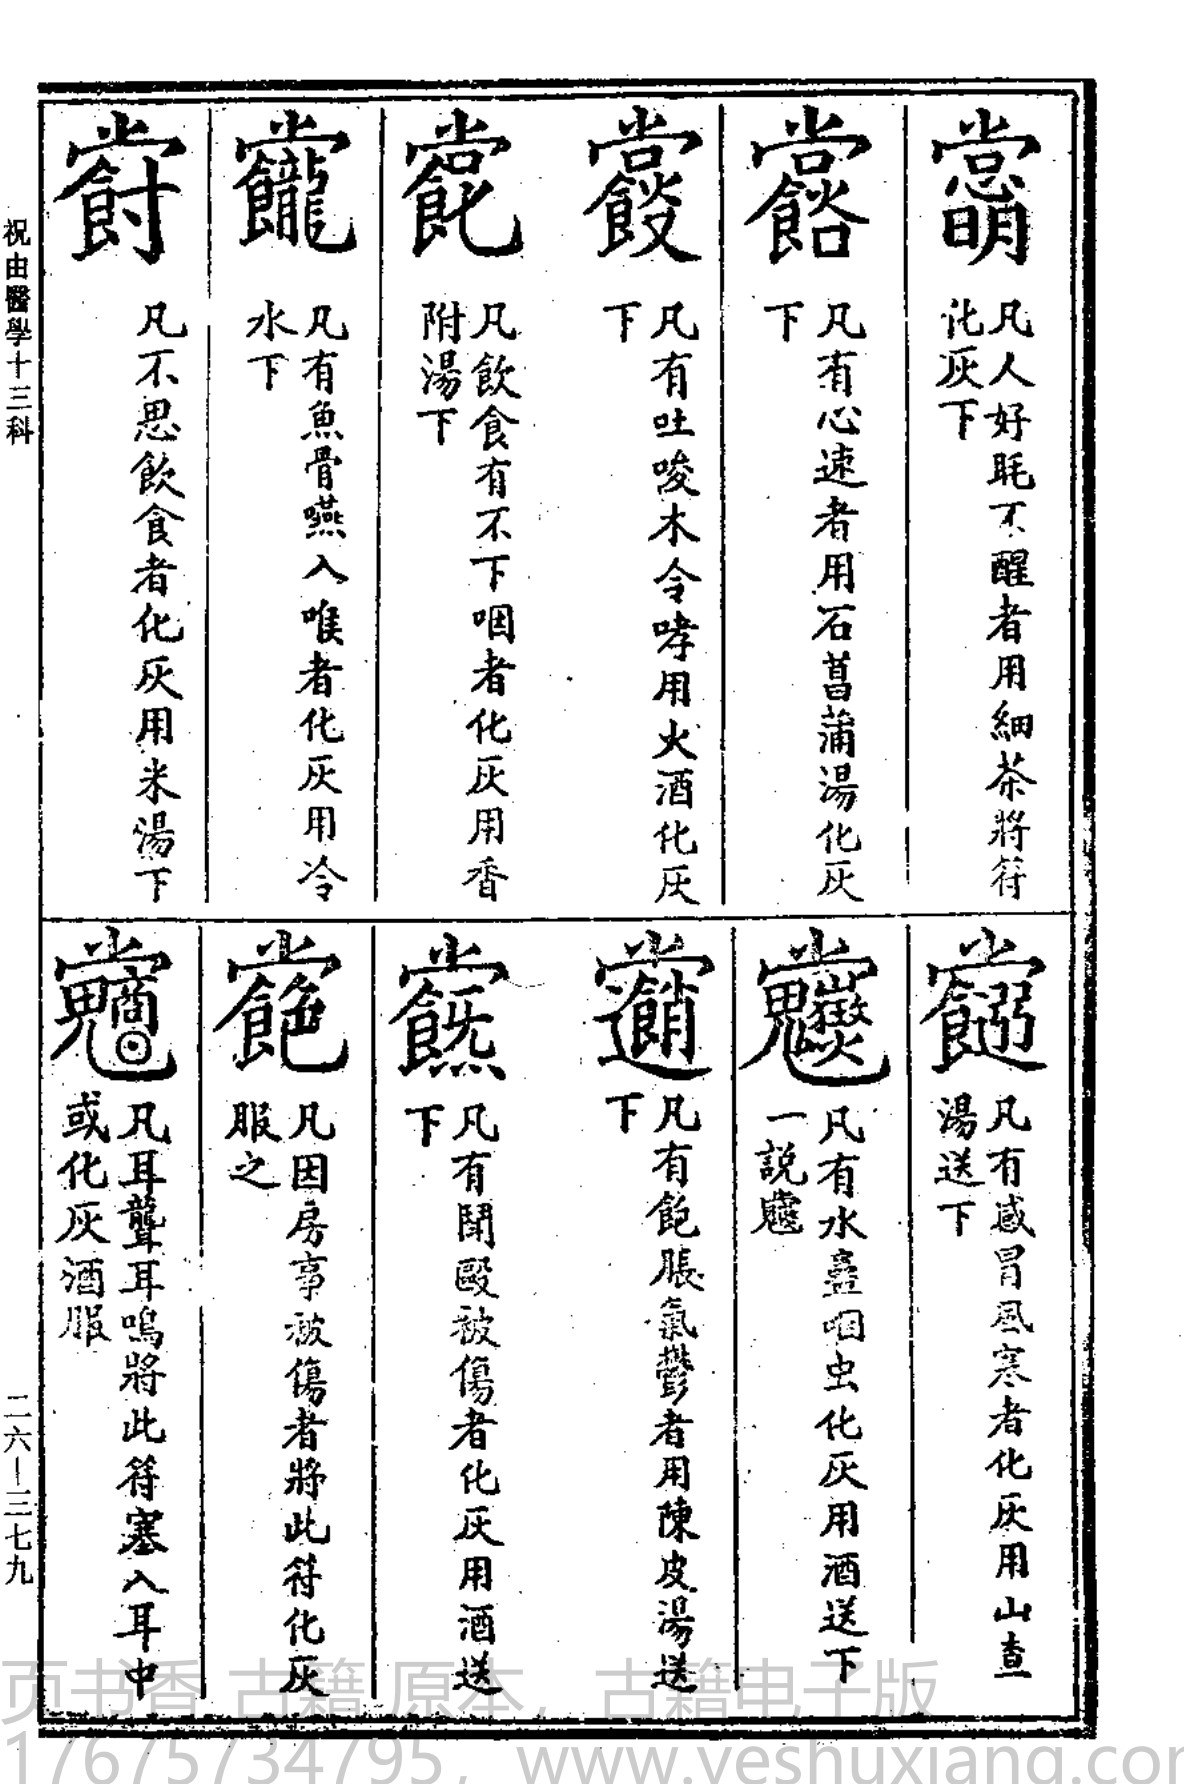 凡人好眊不醒者用細茶將符
化灰下
凡有心速者用石菖蒲湯化灰
下
凡有吐唆木令哮用火酒化灰
下
凡飲食有不下咽者化灰用香
附湯下
凡有魚骨嚥入喉者化灰用冷
水下
凡不思飲食者化灰用米湯下
凡有感冒風寒者化灰用山查
湯送下
凡有水蠱咽虫化灰用酒送下
一説
凡有飽脹氣鬱者用陳皮湯送
下
凡有鬪毆被傷者化灰用酒送
下
凡因房事被傷者將此符化灰
服之
凡耳聾耳鳴將此符塞入耳中
或化灰酒服
祝由醫學十三科
二六—三七九
页书香 古籍 原本，古籍电子版
17675734795，www.yeshuxiang.com